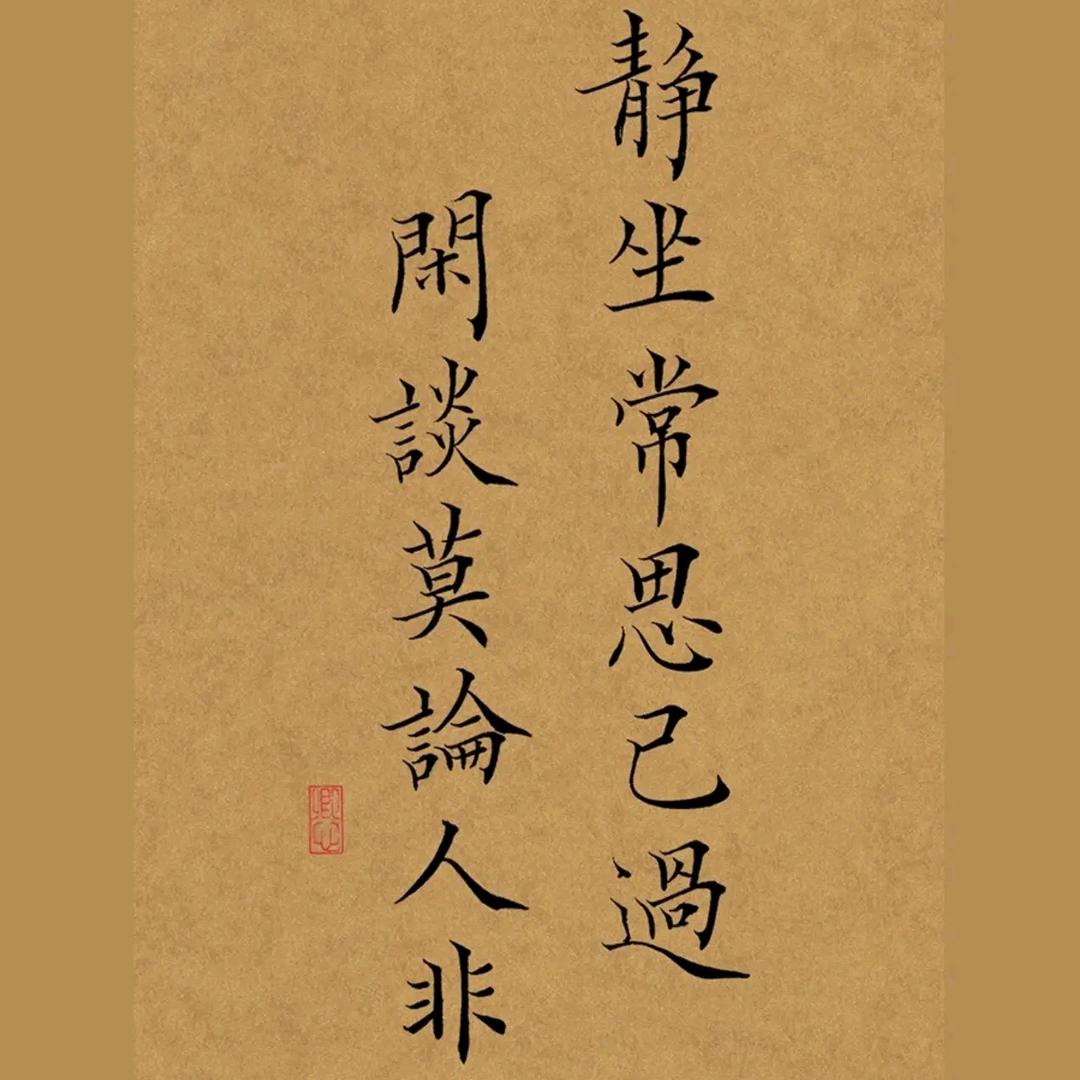 静坐常思己過
閑談莫論人非